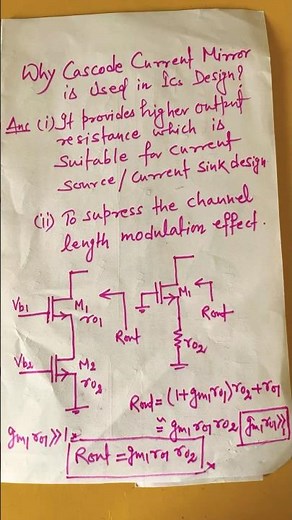 Why Cascode Current Mirror
is Used in ICs Design?
Ans (i) It provides higher output
resistance which is
suitable for current
source/current sink design
(ii) To supress the channel
length modulation effect.
Vb1 M1 ro1 Rout M1 Rout
ro2
Vb2 M2 ro2
Rout = (1+gm1ro1)ro2+ro1
≅ gm1 ro1 ro2 gm1ro1≫1
gm1 ro1≫1
Rout = gm1 ro1 ro2